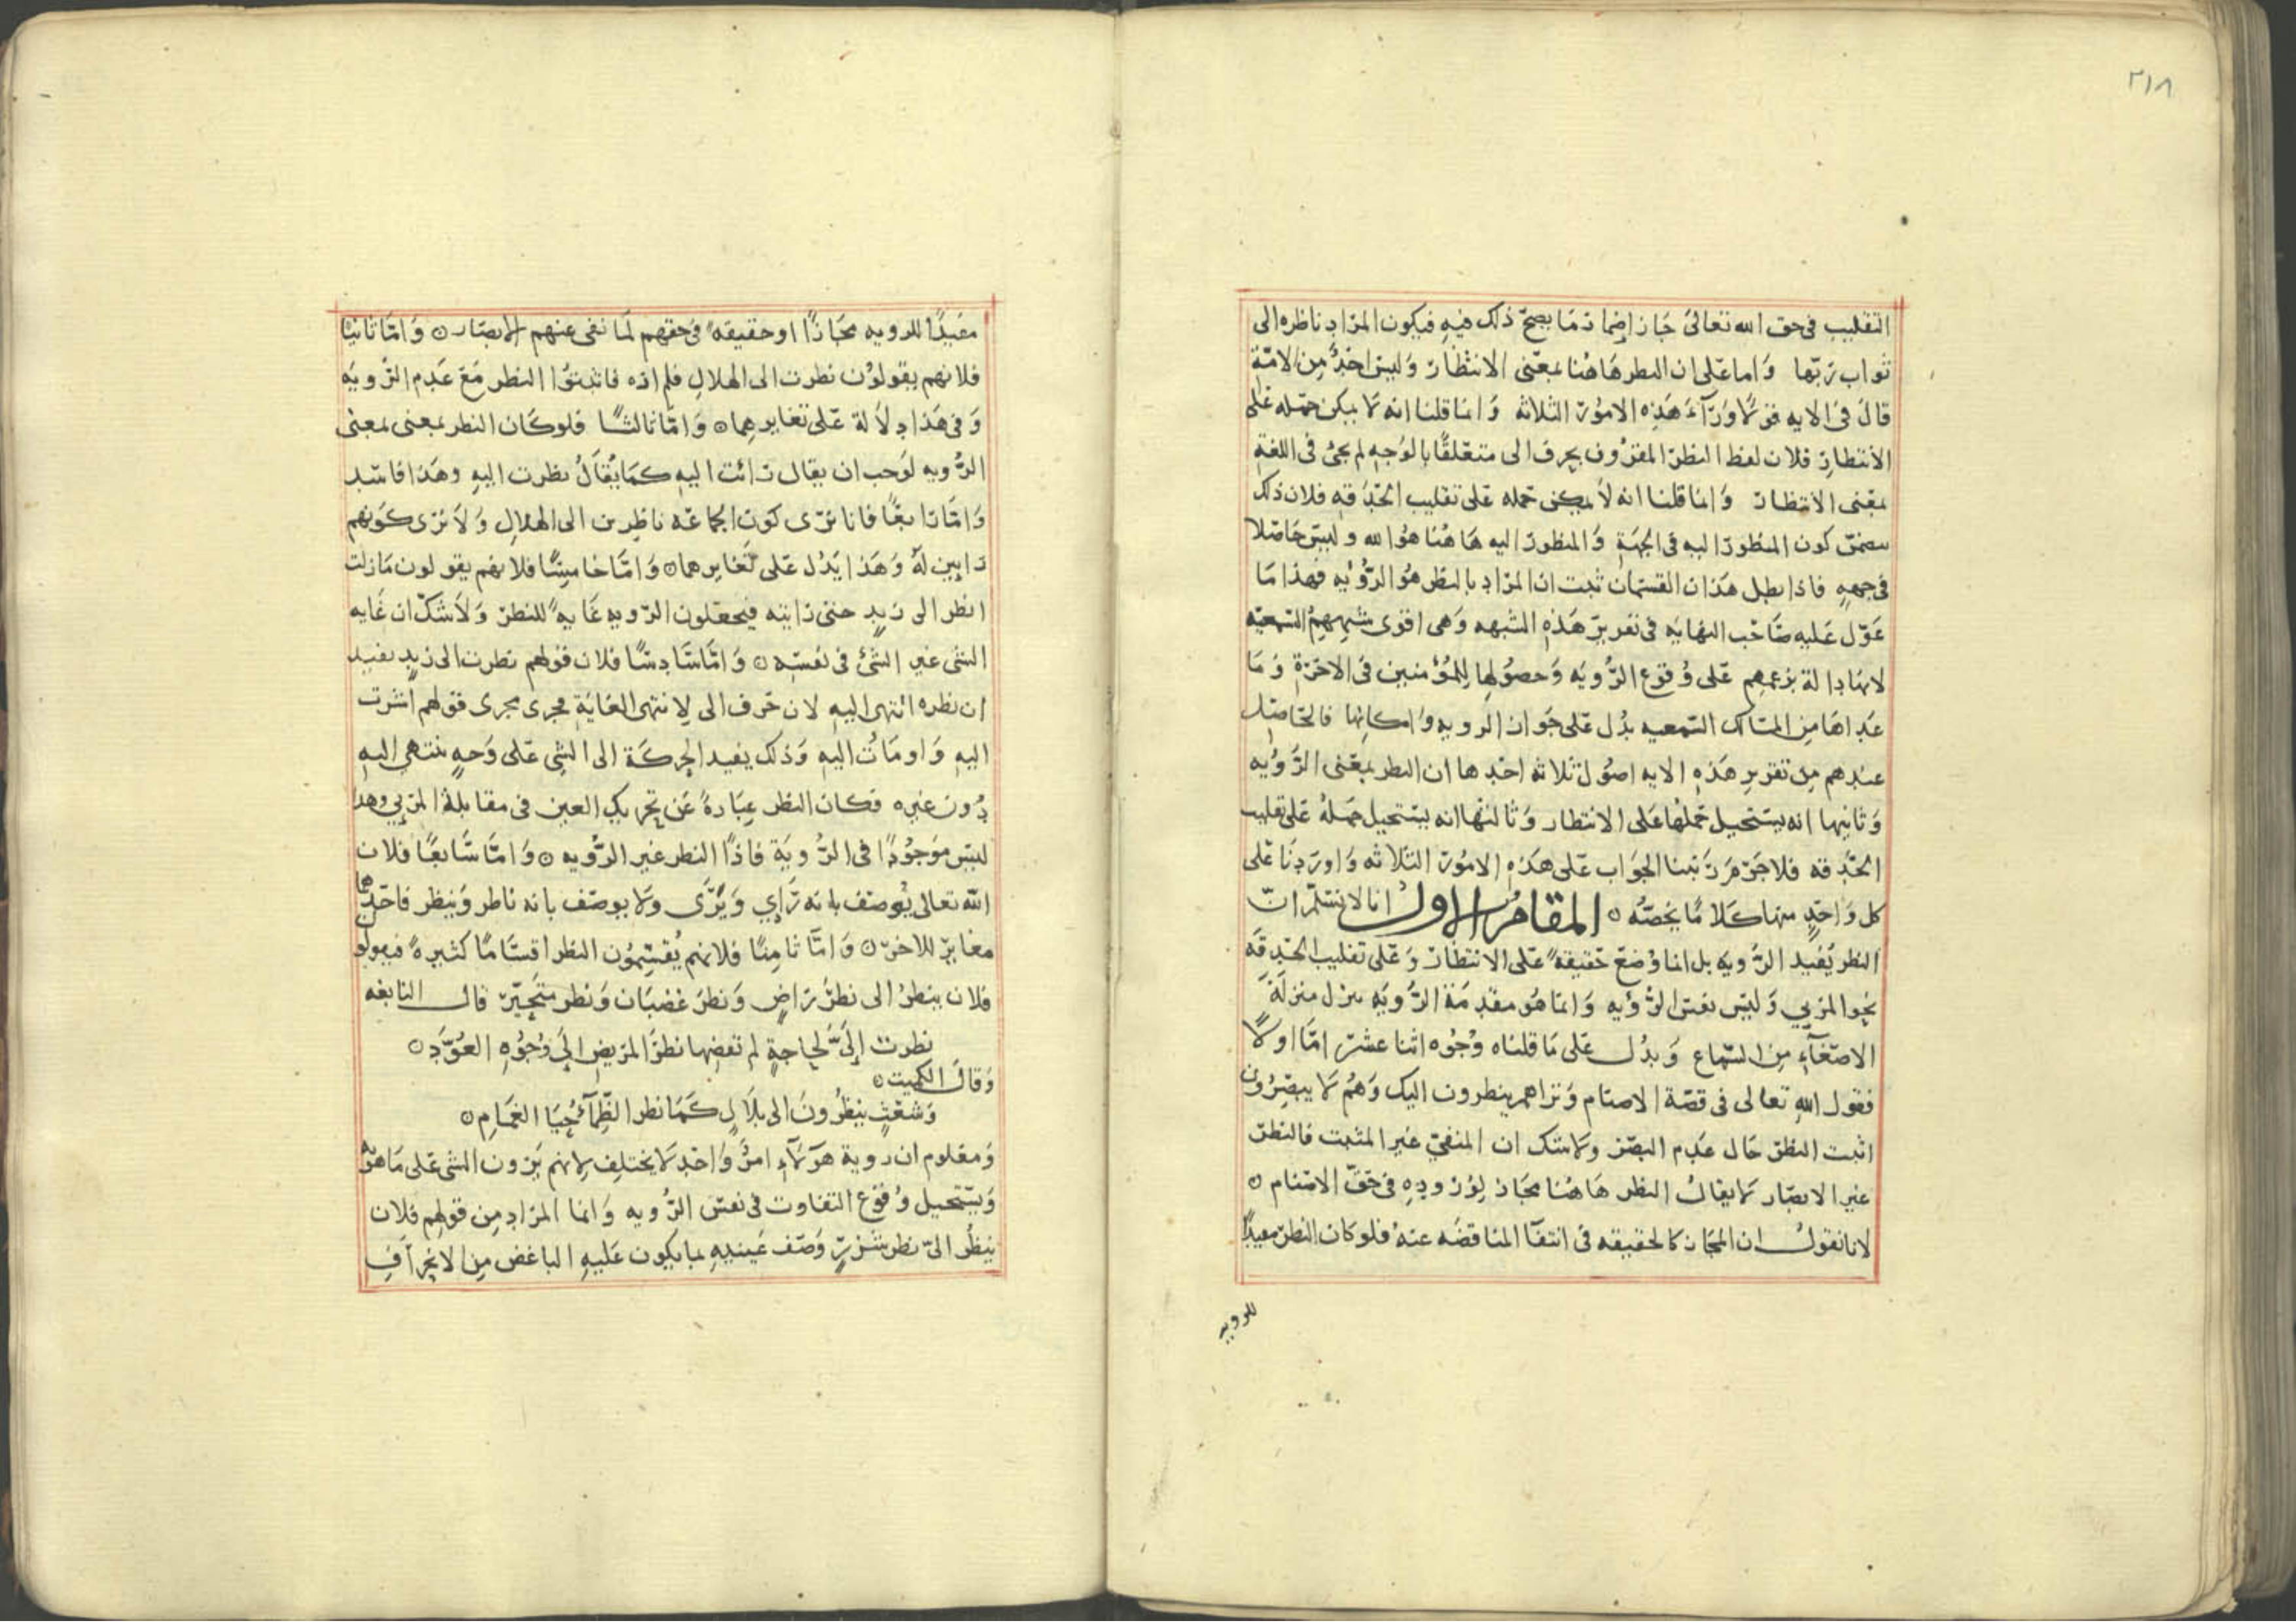 ٢١٨
التقليب فى حق الله تعالى جاز اضمار ما يصح ذلك فيه فيكون المراد ناظره الى
ثواب ربها واما على ان النظر هاهنا بمعنى الانتظار وليس احد من الامة
قال فى الايه قولا ورآء هذه الامور الثلاثه وانما قلنا انه لا يمكن حمله على
الانتظار فلان لفظ النظر المقرون بحرف الى متعلقا بالوجه لم يجئ فى اللغة
بمعنى الانتظار وانما قلنا انه لا يمكن حمله على تقليب الحدقه فلان ذلك
كون المنظور اليه فى الجهة والمنظور اليه هاهنا هو الله وليس حاصلا
فى جهه فاذا بطل هذان القسمان ثبت ان المراد بالنظر هو الرؤيه فهذا ما
عول عليه صاحب النهايه فى تقرير هذه الشبهه وهى اقوى شبههم السمعيه
لانها دالة بزعمهم على وقوع الرؤيه وحصولها للمؤمنين فى الاخرة وما
عداها من المسالك السمعيه يدل على جواز الرويه وامكانها فالحاصل
عندهم من تقرير هذه الايه اصول ثلاثه احدها ان النظر بمعنى الرؤيه
وثانيها انه يستحيل حملها على الانتظار وثالثها انه يستحيل حمله على تقليب
الحدقه فلا جرم رتبنا الجواب على هذه الامور الثلاثه واوردنا على
كل واحد منها كلاما يخصه ○ المقام الاول انا لا نسلم ان
النظر يفيد الرؤيه بل انما وضع حقيقة على الانتظار وعلى تقليب الحدقه
نحو المرىي وليس نفس الرؤيه وانما هو مقدمة الرؤيه ينزل منزلة
الاصغآء من السماع ويدل على ما قلناه وجوه اثنا عشر اما اولا
فقول الله تعالى فى قصة الاصنام وتراهم ينظرون اليك وهم لا يبصرون
اثبت النظر حال عدم البصر ولا شك ان المنفى غير المثبت فالنظر
غير الابصار لا يقال النظر هاهنا مجاز لوروده فى حق الاصنام ○
لانا نقول ان المجاز كالحقيقه فى انتفآ المناقضه عنه فلو كان النظر مفيدا
للرويه
مفيدا للرويه مجازا او حقيقه فى حقهم لما نفى عنهم الابصار ○ واما ثانيا
فلانهم يقولون نظرت الى الهلال فلم اره فاثبتوا النظر مع عدم الرويه
وفى هذا دلالة على تغايرهما ○ واما ثالثا فلو كان النظر بمعنى بمعنى
الرويه لوجب ان يقال رائت اليه كما يقال نظرت اليه وهذا فاسد
واما رابعا فانا نرى كون الجماعه ناظرين الى الهلال ولا نرى كونهم
رايين له وهذا يدل على تغايرهما ○ واما خامسا فلانهم يقولون مازلت
انظر الى زيد حتى رايته فيجعلون الرويه غاية للنظر ولا شك ان غايه
الشى غير الشئ فى نفسه ○ واما سادسا فلان قولهم نظرت الى زيد يفيد
ان نظره انتهى اليه لان حرف الى لانتهى الغاية مجرى مجرى قولهم اشرت
اليه واومات اليه وذلك يفيد الحركة الى الشى على وجه ينتهى اليه
دون غيره فكان النظر عبارة عن تحريك العين فى مقابلة المرىي وهذا
ليس موجودا فى الروية فاذا النظر غير الرؤيه ○ واما سابعا فلان
الله تعالى يوصف بانه رآي ويرى ولا يوصف بانه ناظر وينظر فاحدهما
مغاير للاخر ○ واما ثامنا فلانهم يقسمون النظر اقساما كثيرة فيقولون
فلان ينظر الى نظر راض ونظر غضبان ونظر متحير قال النابغه
نظرت إلى لحاجة لم تقضها نظر المريض إلى وجوه العود ○
وقال الكميت ○
وشعث ينظرون الى بلال كما نظر الظمآء حيا الغمام ○
ومعلوم ان روية هولآء امر واحد لا يختلف لانهم يرون الشى على ما هو به
ويستحيل وقوع التفاوت فى نفس الرويه وانما المراد من قولهم فلان
ينظر الى نظر شزر وصف عينيه بما يكون عليه الباغض من الانحراف